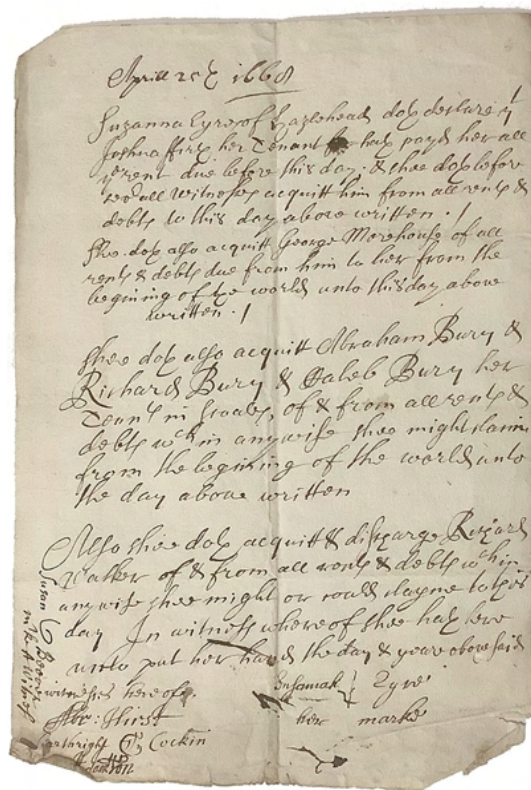 Aprill 25th 1668
Suzanna Eyre of Hazlehead doth declare yt
Joshua ffirth her Tenant hath payd her all
ye rent due before this day, & shee doth before
severall Witnesses acquitt him from all rents &
debts to this day above written.
Shee doth also acquitt George Morehouse of all
rents & debts due from him to her from the
begining of the world unto this day above
written.
Shee doth also acquitt Abraham Bury &
Richard Bury & Caleb Bury her
Tennts in of & from all rents &
debts wch in anywise shee might claim
from the begining of the world unto
the day above written
Also shee doth acquitt & discharge Richard
Walker of & from all rents & debts wch in
anywise shee might or could clayme to this
day In witness whereof shee hath here
unto put her hand the day & yeare abovesaid
Susannah Eyre
her marke
witnesses hereof.
Hirst
Cockin
Jackson
Susan
marke Witness